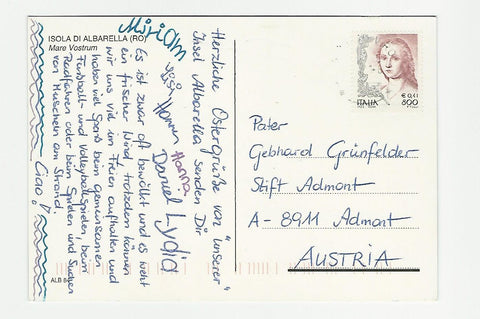 ISOLA DI ALBARELLA (RO)
Mare Vostrum
Herzliche Ostergrüße von "unserer"
Insel Albarella senden Dir
Miriam
Sissi
Hanna
Daniel
Lydia
Es ist zwar oft bewölkt und es weht
ein frischer Wind, trotzdem können
wir uns viel im Freien aufhalten und
haben viel Spaß beim gemeinsamen
Fußball- und Volleyballspielen, beim
Radfahren oder beim Spielen und Suchen
von Muscheln am Strand.
Ciao!
ITALIA
€ 0,41
800
Pater
Gebhard Grünfelder
Stift Admont
A-8911 Admont
AUSTRIA